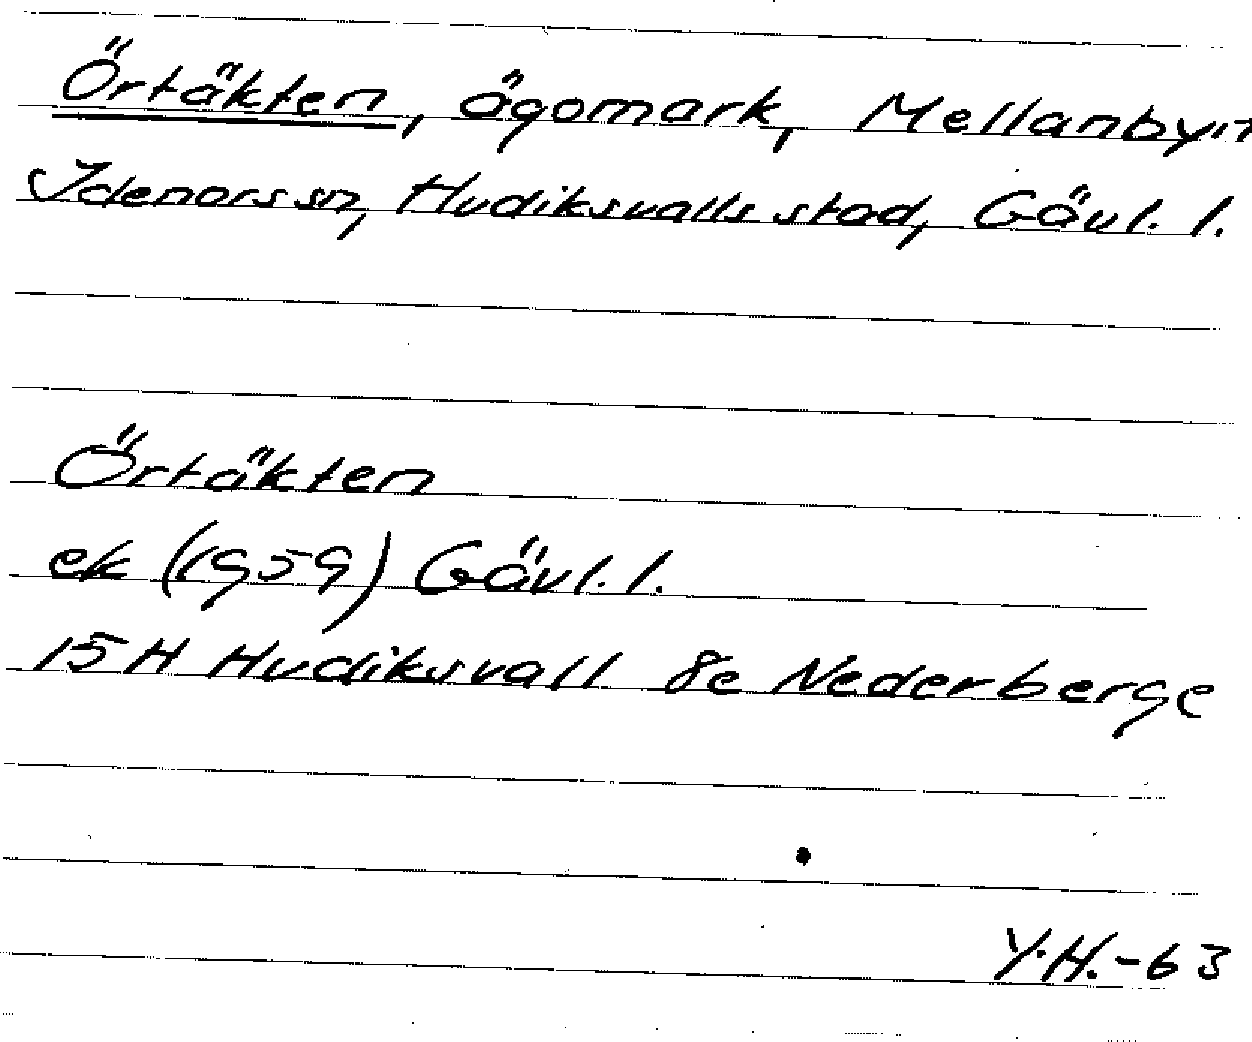 Örtäkten, ägomark, Mellanbyn
Idenors sn, Hudiksvalls stad, Gävl. l.
Örtäkten
ek (1959) Gävl. l.
15 H Hudiksvall 8e Nederberge
Y.H.-63